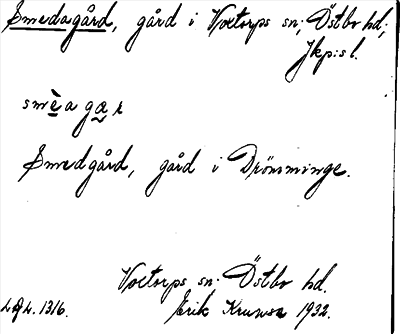 Smedagård, gård i Voxtorps sn; Östbo hd;
Jkp:s l.
smèa gar
Smedgård, gård i Drömminge.
Voxtorps sn. Östbo hd.
Erik 1932.
1316.